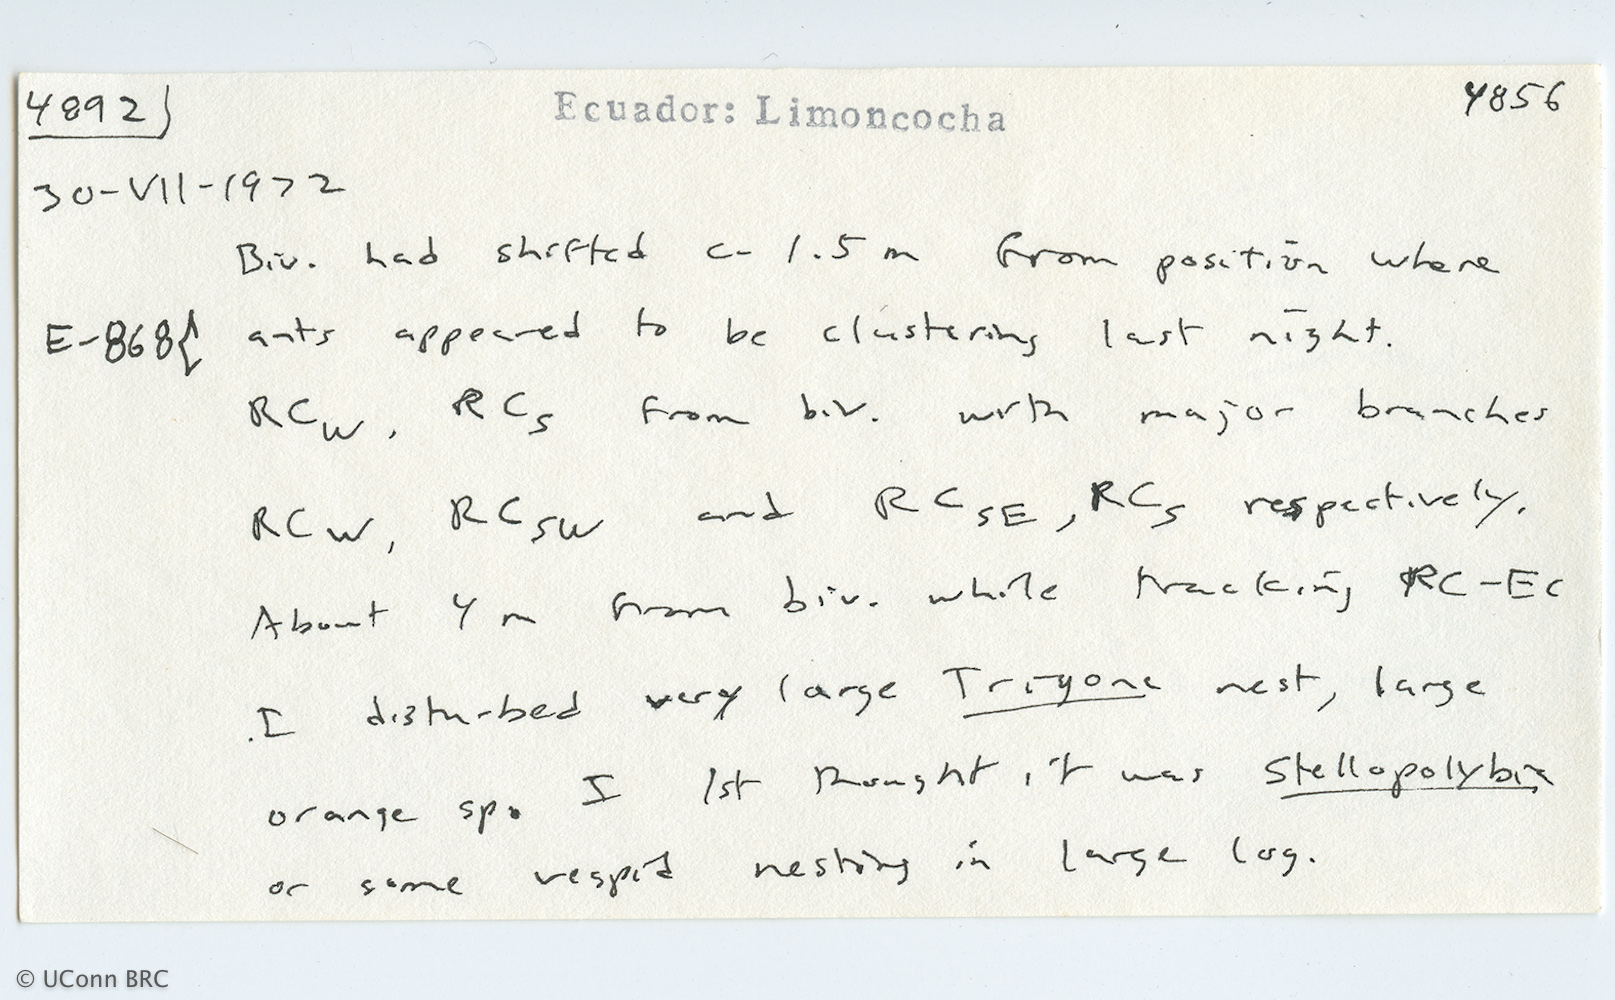 4892} Ecuador: Limoncocha 4856
30-VII-1972
Biv. had shifted c- 1.5 m from position where
E-868{ ants appeared to be clustering last night.
RCW, RCS from biv. with major branches
RCW, RCSW and RCSE, RCS respectively.
About 4 m from biv. while tracking RC-Ec
I disturbed very large Trigona nest, large
orange sp. I 1st thought it was Stellopolybia
or some vespid nesting in large log.
© UConn BRC